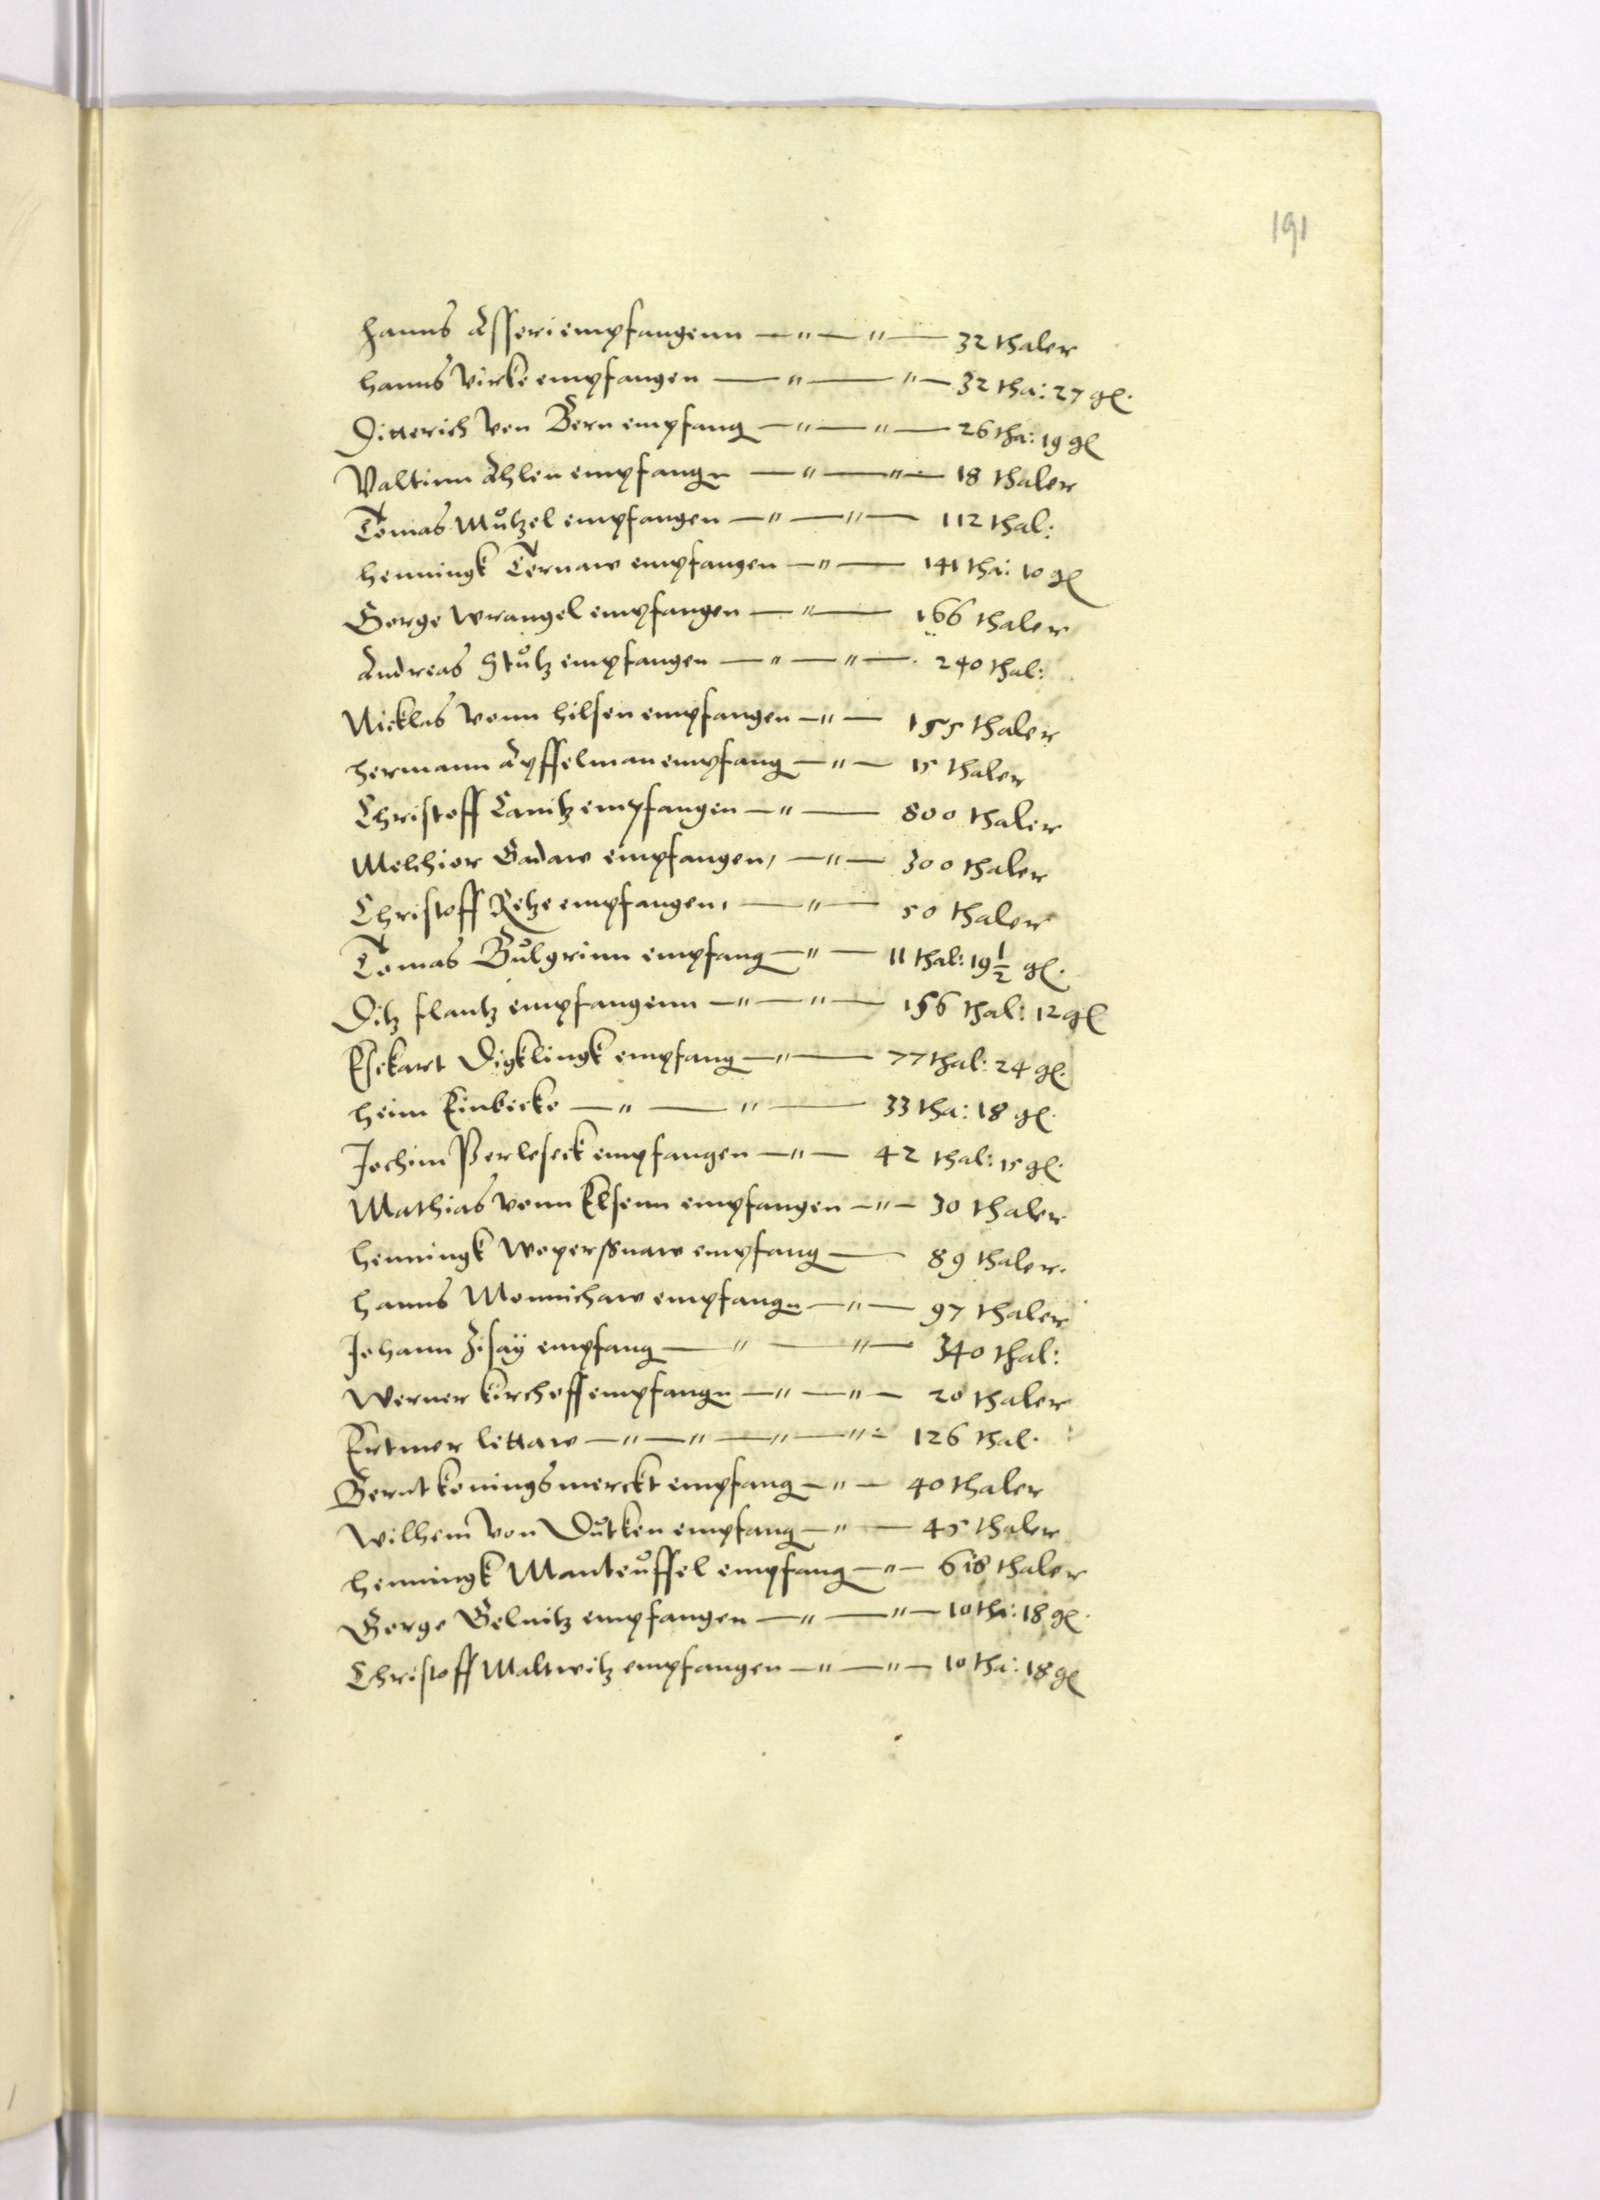 191
Hanns Asseri empfangenn — " — " — 32 thaler
hanns Vicke empfangen — " — " — 32 tha: 27 gl.
Ditterich von Bern empfang — " — " — 26 tha: 19 gl
Valtinn Ahlen empfangn — " — " — 18 thaler
Tomas Mützel empfangen — " — " — 112 thal:
henningk Ternaw empfangen — " — 141 tha: 10 gl
Gorge Wrangel empfangen — " — 166 thaler
Andreas Stültz empfangen — " — " — 240 thal:
Nicklas vonn hilsen empfangen — " — 155 thaler
hermann Aysselman empfang — " — 15 thaler
Christoff Canitz empfangen — " — 800 thaler
Melchior Gadaw empfangen, — " — 300 thaler
Christoff Retze empfangen, — " — 50 thaler
Tomas Bulgrinn empfang — " — 11 thal: 19 1/2 gl.
Ditz flantz empfangenn — " — " — 156 thal: 12 gl
Eickart Digklingk empfang — " — 77 thal: 24 gl.
heim Einbecke — " — " — 33 tha: 18 gl.
Jochim Perleseck empfangen — " — 42 thal: 15 gl.
Mathias vonn Elsenn empfangen — " — 30 thaler
henningk Woperssnaw empfang — 89 thaler.
hanns Monnichaw empfangn — " — 97 thaler
Johann Zisaÿ empfang — " — " — 340 thal:
Werner kirchoff empfangn — " — " — 20 thaler
Ertmer littaw — " — " — " — " — 126 thal.
Bernt koningsmerckt empfang — " — 40 thaler
Wilhem von Dutken empfang — " — 45 thaler
henningk Manteuffel empfang — " — 618 thaler
Gorge Gelnitz empfangen — " — " — 10 tha: 18 gl.
Christoff Maltwitz empfangen — " — " — 10 tha: 18 gl